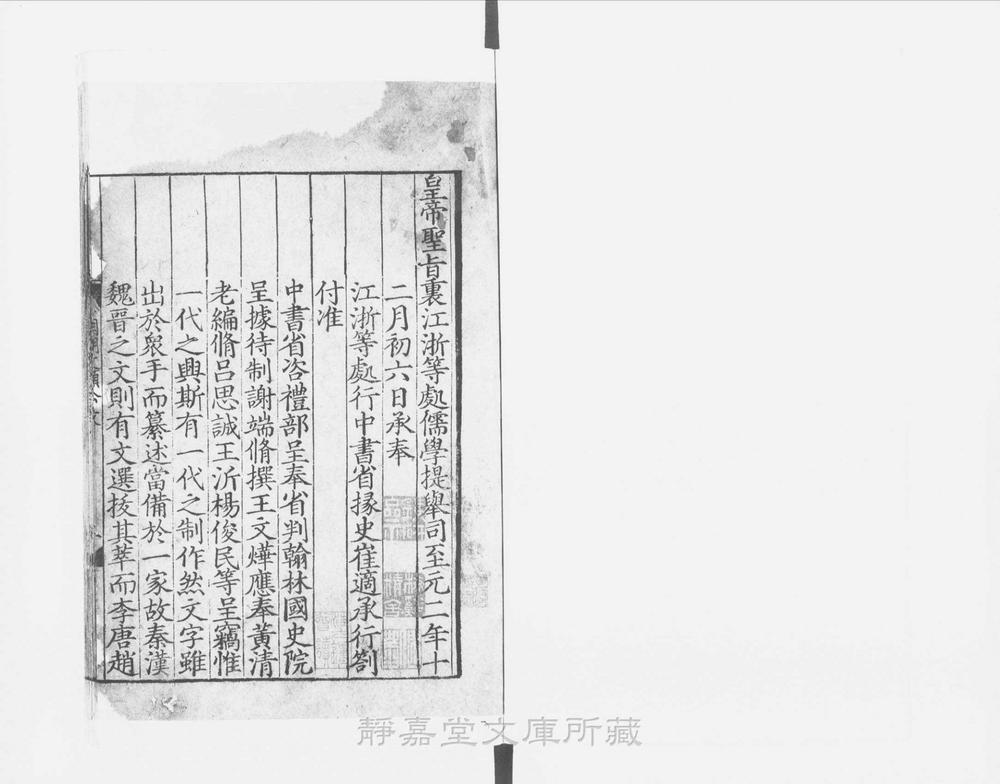 皇帝聖旨裏江浙等處儒學提舉司至元二年十
二月初六日承奉
江浙等處行中書省掾史崔適承行劄
付准
中書省咨禮部呈奉省判翰林國史院
呈據待制謝端脩撰王文燁應奉黃清
老編脩呂思誠王沂楊俊民等呈竊惟
一代之興斯有一代之制作然文字雖
出於衆手而纂述當備於一家故秦漢
魏晉之文則有文選拔其萃而李唐趙
靜嘉堂文庫所藏